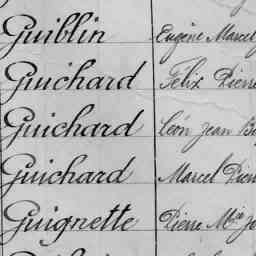 Guiblin Eugène Marcel
Guichard Félix Pierre
Guichard Léon Jean
Guichard Marcel
Guignette Pierre Mie